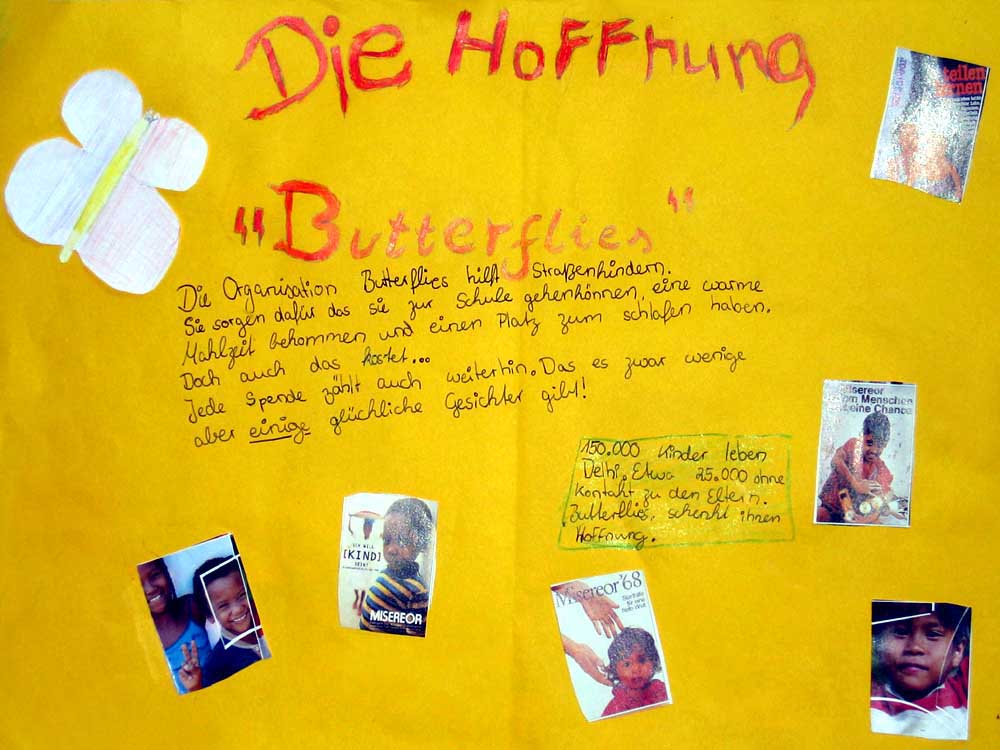 Die Hoffnung
"Butterflies"
Die Organisation Butterflies hilft Straßenkindern.
Sie sorgen dafür das sie zur Schule gehenkönnen, eine warme
Mahlzeit bekommen und einen Platz zum schlafen haben.
Doch auch das kostet...
Jede Spende zählt auch weiterhin. Das es zwar wenige
aber einige glückliche Gesichter gibt!
150.000 Kinder leben
Delhi. Etwa 25.000 ohne
Kontakt zu den Eltern.
Butterflies, schenkt ihnen
Hoffnung.
teilen
lernen
Misereor
Menschen
eine Chance
ICH WILL
[KIND]
SEIN!
MISEREOR
Misereor '68